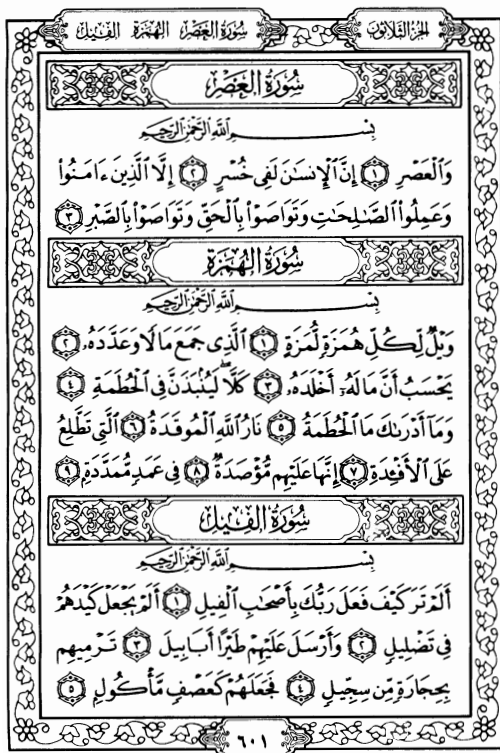 الجزء الثلاثون
سورة العصر الهمزة الفيل
سُورَةُ العَصْرِ
بِسْمِ ٱللَّهِ ٱلرَّحْمَٰنِ ٱلرَّحِيمِ
وَٱلْعَصْرِ ١ إِنَّ ٱلْإِنسَٰنَ لَفِى خُسْرٍ ٢ إِلَّا ٱلَّذِينَ ءَامَنُوا۟
وَعَمِلُوا۟ ٱلصَّٰلِحَٰتِ وَتَوَاصَوْا۟ بِٱلْحَقِّ وَتَوَاصَوْا۟ بِٱلصَّبْرِ ٣
سُورَةُ الهُمَزَةِ
بِسْمِ ٱللَّهِ ٱلرَّحْمَٰنِ ٱلرَّحِيمِ
وَيْلٌ لِّكُلِّ هُمَزَةٍ لُّمَزَةٍ ١ ٱلَّذِى جَمَعَ مَالًا وَعَدَّدَهُۥ ٢
يَحْسَبُ أَنَّ مَالَهُۥٓ أَخْلَدَهُۥ ٣ كَلَّا لَيُنۢبَذَنَّ فِى ٱلْحُطَمَةِ ٤
وَمَآ أَدْرَىٰكَ مَا ٱلْحُطَمَةُ ٥ نَارُ ٱللَّهِ ٱلْمُوقَدَةُ ٦ ٱلَّتِى تَطَّلِعُ
عَلَى ٱلْأَفْـِٔدَةِ ٧ إِنَّهَا عَلَيْهِم مُّؤْصَدَةٌ ٨ فِى عَمَدٍ مُّمَدَّدَةٍۭ ٩
سُورَةُ الفِيلِ
بِسْمِ ٱللَّهِ ٱلرَّحْمَٰنِ ٱلرَّحِيمِ
أَلَمْ تَرَ كَيْفَ فَعَلَ رَبُّكَ بِأَصْحَٰبِ ٱلْفِيلِ ١ أَلَمْ يَجْعَلْ كَيْدَهُمْ
فِى تَضْلِيلٍ ٢ وَأَرْسَلَ عَلَيْهِمْ طَيْرًا أَبَابِيلَ ٣ تَرْمِيهِم
بِحِجَارَةٍ مِّن سِجِّيلٍ ٤ فَجَعَلَهُمْ كَعَصْفٍ مَّأْكُولٍۭ ٥
٦٠١